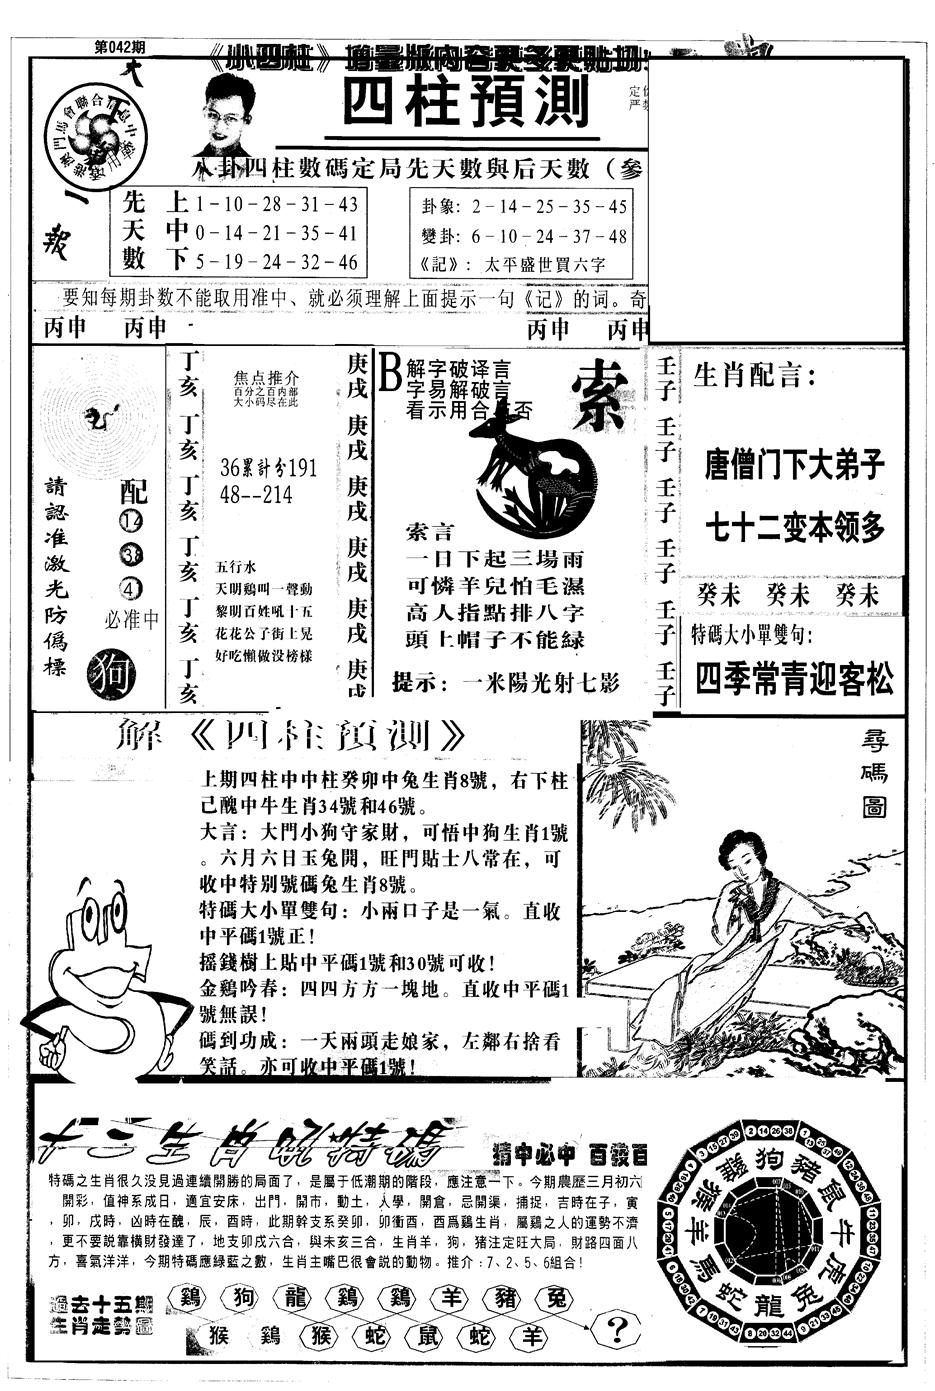 第042期
《小四柱》增量版内容更多更貼切
大
一
報
四柱預測
八卦四柱數碼定局先天數與后天數（參
先天數
上 1-10-28-31-43
中 0-14-21-35-41
下 5-19-24-32-46
卦象: 2-14-25-35-45
變卦: 6-10-24-37-48
《記》: 太平盛世買六字
要知每期卦数不能取用准中、就必须理解上面提示一句《记》的词。奇
丙申 丙申 丙申 丙申
請認准激光防僞標
配
12
38
4
必准中
狗
丁亥 丁亥 丁亥 丁亥 丁亥 丁亥
焦点推介
百分之百内部
大小码尽在此
36累計分191
48--214
五行水
天明鷄叫一聲動
黎明百姓吼十五
花花公子街上晃
好吃懒做没榜樣
庚戌 庚戌 庚戌 庚戌 庚戌 庚戌
B 解字破译言
字易解破言
看示用合 否
索
索言
一日下起三場雨
可憐羊兒怕毛濕
高人指點排八字
頭上帽子不能緑
提示: 一米陽光射七影
壬子 壬子 壬子 壬子 壬子 壬子
生肖配言:
唐僧门下大弟子
七十二变本领多
癸未 癸未 癸未
特碼大小單雙句:
四季常青迎客松
解《四柱預測》
上期四柱中中柱癸卯中兔生肖8號，右下柱
己醜中牛生肖34號和46號。
大言: 大門小狗守家財，可悟中狗生肖1號
。六月六日玉兔開，旺門貼士八常在，可
收中特别號碼兔生肖8號。
特碼大小單雙句: 小兩口子是一氣。直收
中平碼1號正!
摇錢樹上貼中平碼1號和30號可收!
金鷄吟春: 四四方方一塊地。直收中平碼1
號無誤!
碼到功成: 一天兩頭走娘家，左鄰右捨看
笑話。亦可收中平碼1號!
尋碼圖
十二生肖吼特碼
猜中必中 百發百
特碼之生肖很久没見過連續開勝的局面了，是屬于低潮期的階段，應注意一下。今期農歷三月初六
開彩，值神系成日，適宜安床，出門，開市，動土，人學，開倉，忌開渠，捕捉，吉時在子，寅
，卯，戌時，凶時在醜，辰，酉時，此期幹支系癸卯，卯衝酉，酉爲鷄生肖，屬鷄之人的運勢不濟
，更不要説靠横財發達了，地支卯戌六合，與未亥三合，生肖羊，狗，猪注定旺大局，財路四面八
方，喜氣洋洋，今期特碼應緑藍之數，生肖主嘴巴很會説的動物。推介:7、2、5、6組合!
過去十五期
生肖走勢圖
鷄 狗 龍 鷄 鷄 羊 豬 兔
猴 鷄 猴 蛇 鼠 蛇 羊 ?
狗 豬 鼠 牛 虎 兔 龍 蛇 馬 羊 猴 雞